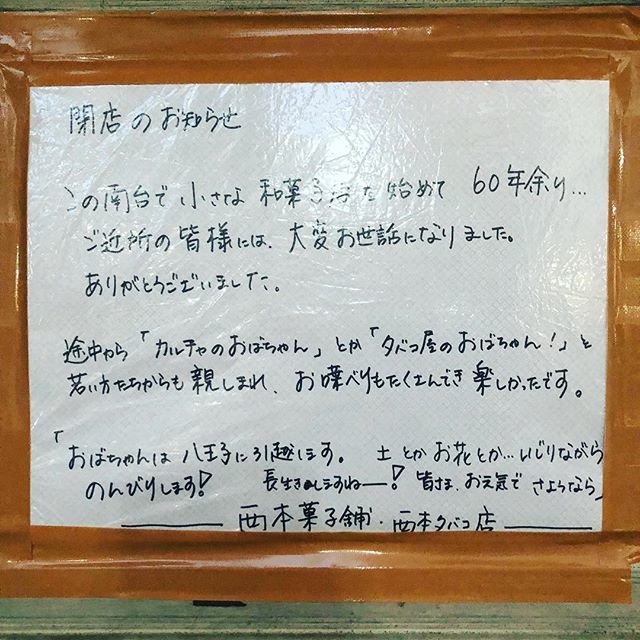 閉店のお知らせ
この南台で小さな和菓子屋を始めて 60年余り...
ご近所の皆様には、大変お世話になりました。
ありがとうございました。
途中から「カルチャのおばちゃん」とか「タバコ屋のおばちゃん!」と
若い方たちからも親しまれ、お喋べりもたくさんでき楽しかったです。
「おばちゃんは八王子に引越します。 土とかお花とか...いじりながら
のんびりします! 長生きしますねー! 皆さま、お元気で さようなら」
西本菓子舗・西本タバコ店